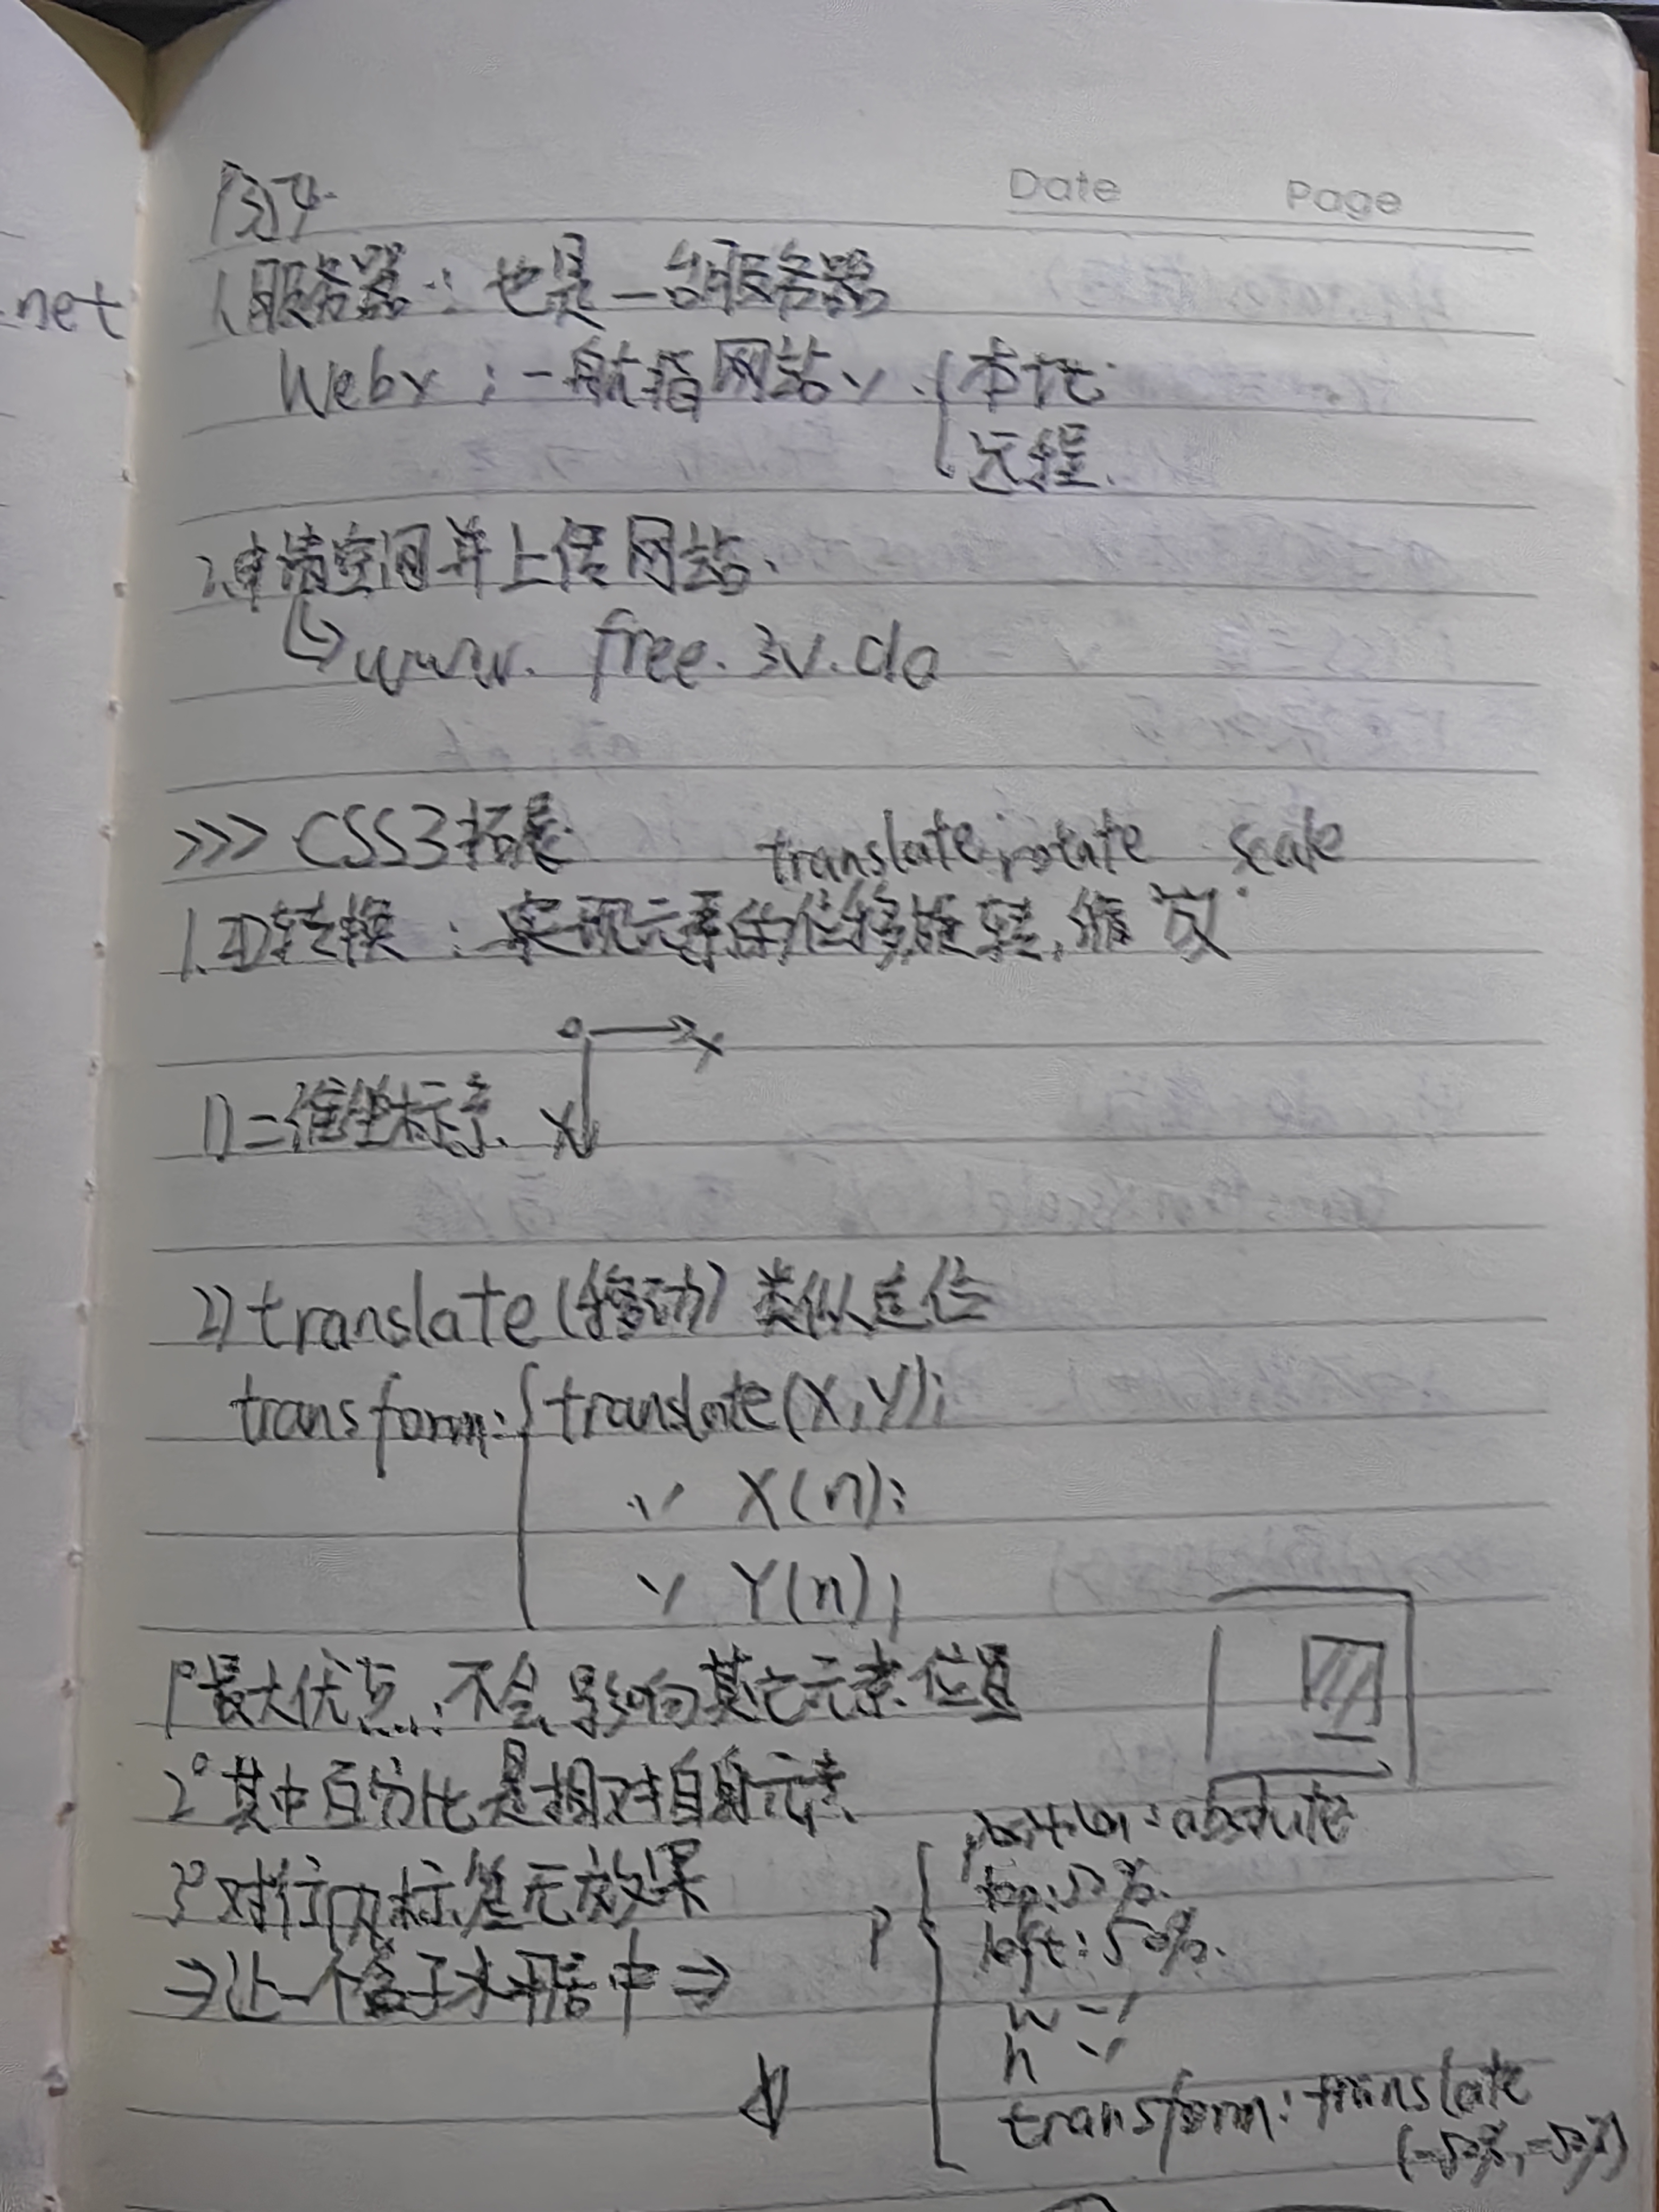 .net
Date Page
1.服务器：也是一台服务器
Web〃：一般指网站〃 { 本地
远程.
2.申请空间并上传网站.
↳ www. free. 3v. do
>>> CSS3拓展 translate rotate scale
1.2D转换：实现元素的位移,旋转,缩放.
0 → X
1) 二维坐标系.
2) translate (移动) 类似定位
transform: { translate(X,Y);
〃 X(n);
〃 Y(n);
1° 最大优点：不会影响其它元素位置
2° 其中百分比是相对自身元素
3° 对行内标签无效果
⇒让一个盒子水平居中⇒
P { position: absolute
top: 50%.
left: 50%.
w 〃
h 〃
transform: translate
(-50%, -50%)